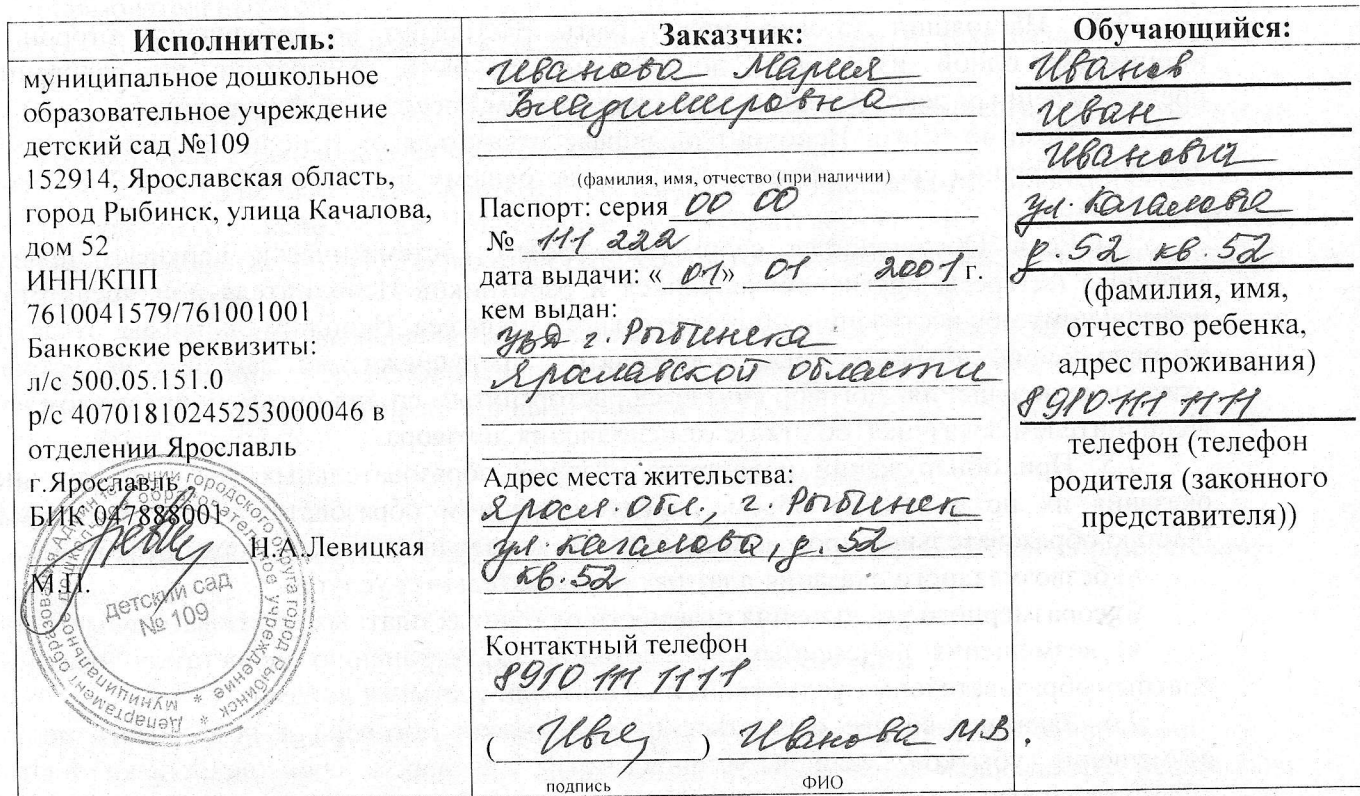 Исполнитель:
муниципальное дошкольное
образовательное учреждение
детский сад №109
152914, Ярославская область,
город Рыбинск, улица Качалова,
дом 52
ИНН/КПП
7610041579/761001001
Банковские реквизиты:
л/с 500.05.151.0
р/с 40701810245253000046 в
отделении Ярославль
г.Ярославль
БИК 047888001
Н.А.Левицкая
М.П.
детский сад
№ 109
Заказчик:
Иванова Мария
Владимировна
(фамилия, имя, отчество (при наличии)
Паспорт: серия 00 00
№ 111 222
дата выдачи: « 01» 01 2001 г.
кем выдан:
УВД г. Рыбинска
Ярославской области
Адрес места жительства:
Яросл обл., г Рыбинск
ул. Качалова, д. 52
кв. 52
Контактный телефон
8910 111 1111
( ) Иванова М.В.
подпись ФИО
Обучающийся:
Иванов
Иван
Иванович
ул. Качалова
д. 52 кв. 52
(фамилия, имя,
отчество ребенка,
адрес проживания)
8910 111 1111
телефон (телефон
родителя (законного
представителя))